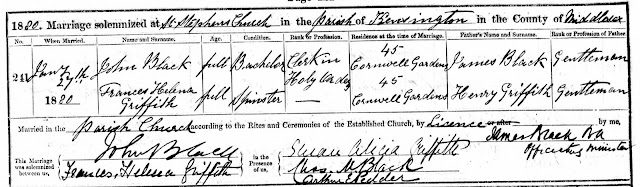 1880. Marriage solemnized at St Stephens Church in the Parish of Kensington in the County of Middlesex
No. When Married. Name and Surname. Age. Condition. Rank or Profession. Residence at the time of Marriage. Father's Name and Surname. Rank or Profession of Father.
241 Jany 27th 1880 John Black full Bachelor Clerk in Holy Orders 45 Cornwell Gardens James Black Gentleman
Frances Helena Griffith full Spinster — 45 Cornwell Gardens Henry Griffith Gentleman
Married in the Parish Church according to the Rites and Ceremonies of the Established Church, by Licence or after by me,
James Black
Officiating Minister
This Marriage was solemnized between us,
John Black
Frances Helena Griffith
in the Presence of us,
Susan Alicia Griffith
Chas M Black
Arthur